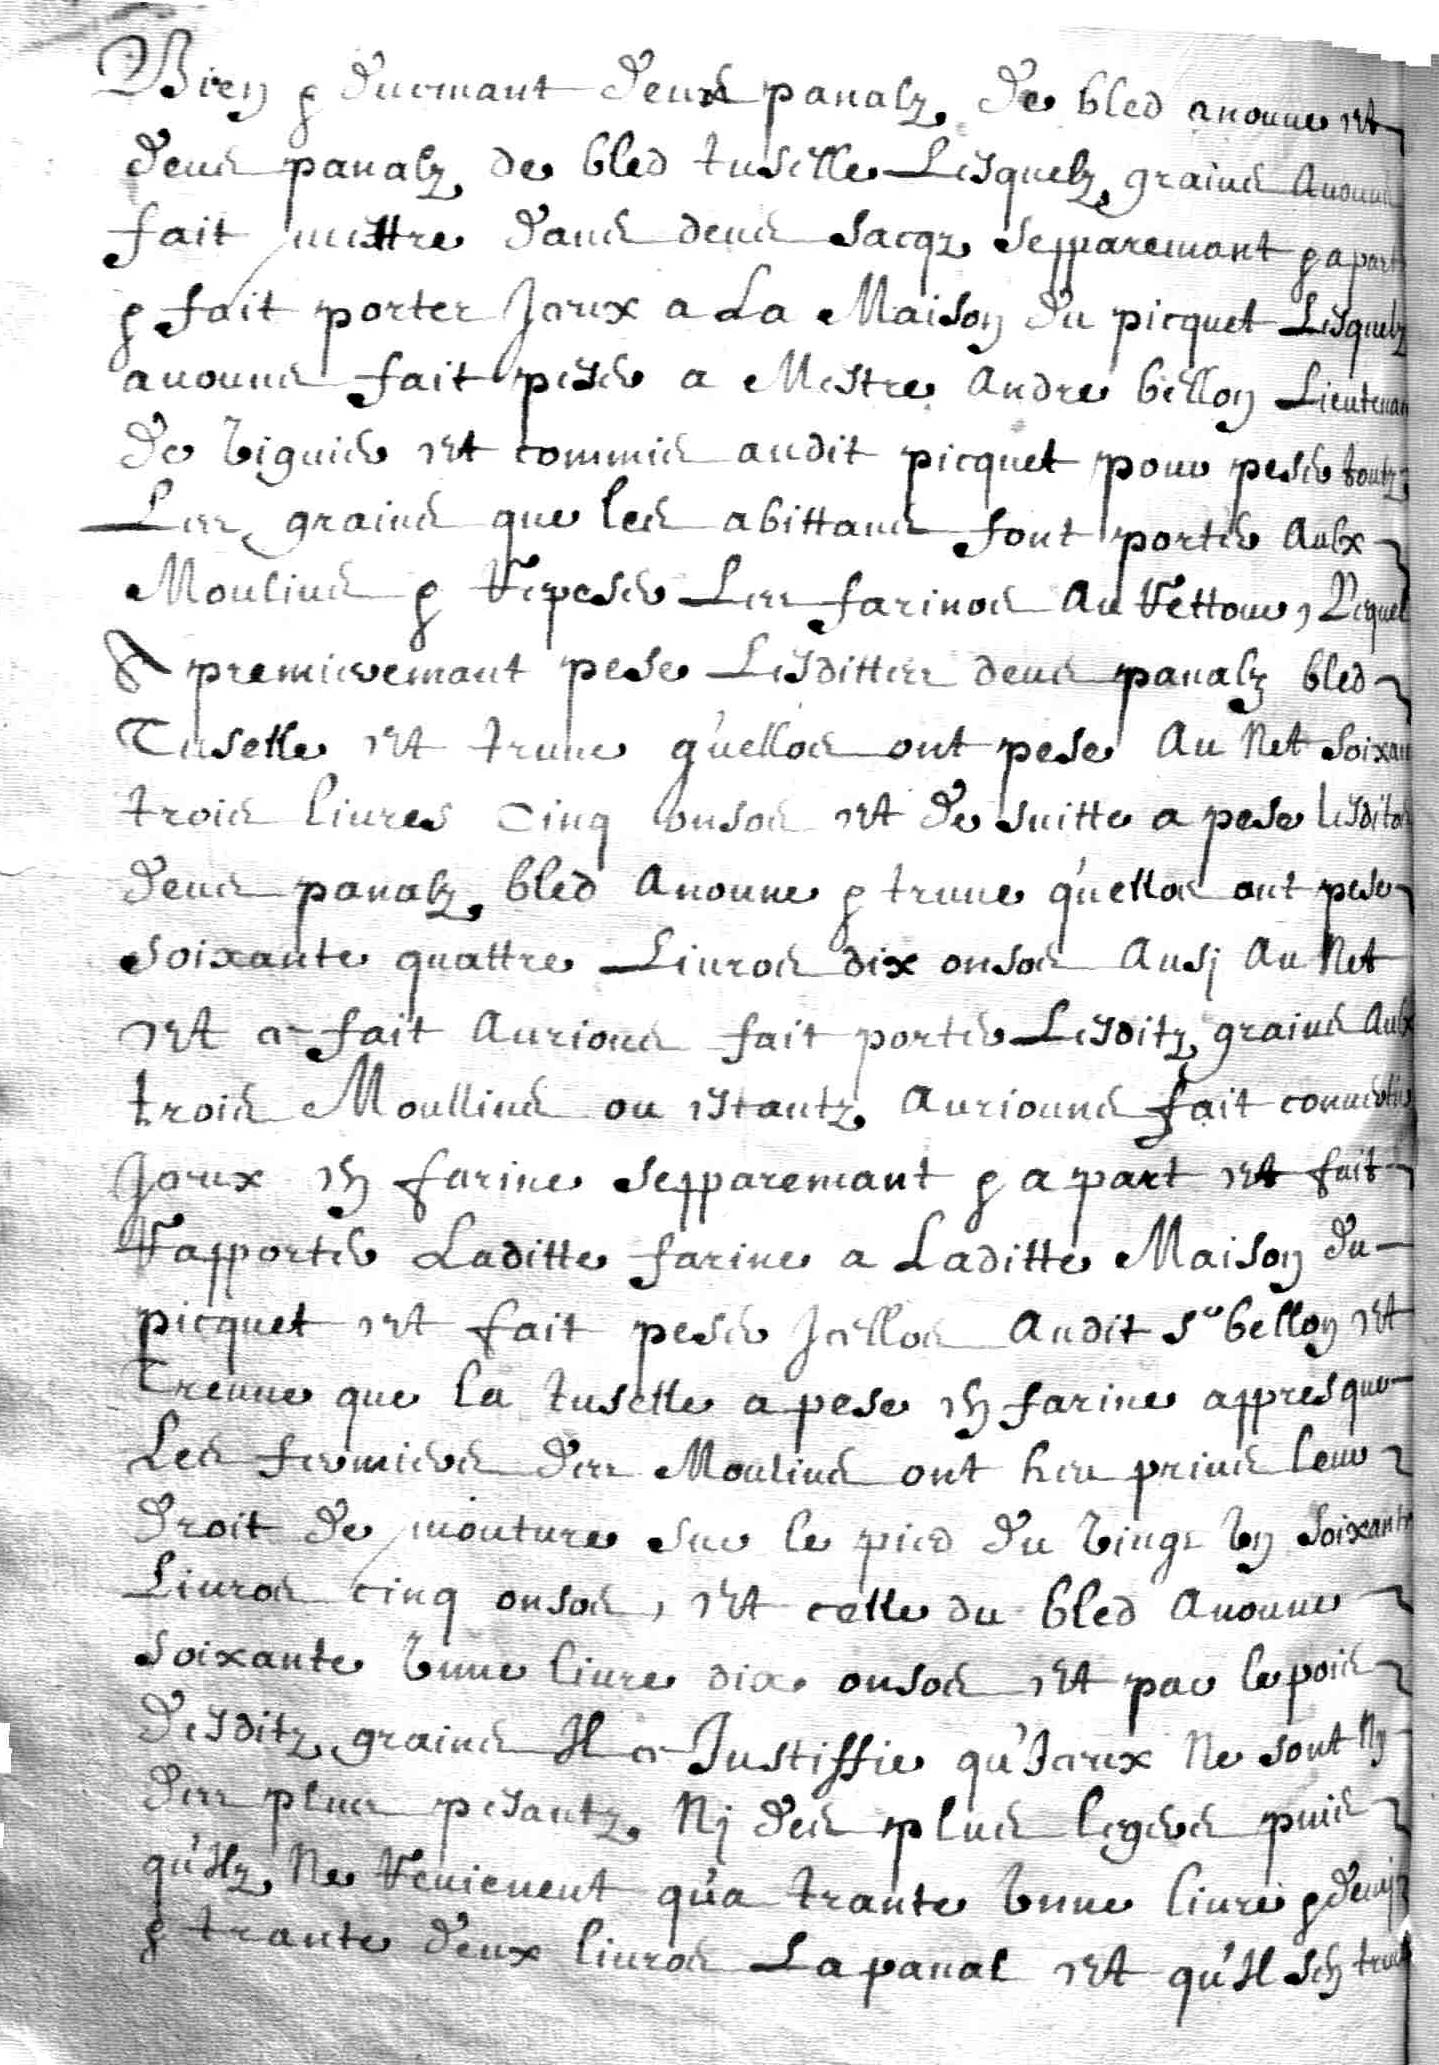 Bien & duemant deux panalz de bled anonne et
deus panalz de bled tuselle Lesquelz grains Avons
fait mettre dans deus sacqz sepparemant & apart
& fait porter Iceux a La Maison du picquet Lesquelz
avouns fait peser a Mestre Andre bellon Lieutenan
de viguier et commis audit picquet pour peser toutz
Les grains que les abittans font porter Aulx
Moulins & Repeser Les farines Au Rettour, Lequel
A premieremant pese Lesdittes deus panalz bled
Tuselle et truve q'uelles ont pese Au Net soixan
trois livres cinq onses et de suitte a pese lesdites
deus panalz bled Anonne & truve q'uelles ont pese
soixante quattre Livres dix onses Ausj Au Net
et ce fait Aurions fait porter Lesditz grains Aulx
trois Moullins ou estantz Aurions fait convertir
Iceux en farine sepparemant & a part et fait
Rapporter Laditte farine a Laditte Maison du
picquet et fait peser Icelles Audit Sr bellon et
Treuve que la tuselle a pese en farine appres que
Les fermiers des Moulins ont heu prins leur
droit de mouture sur le pied du vingt un soixante
Livres cinq onses, et celle du bled Anonne
soixante unne livre dix onses et par le pois
desditz grains Il ce Justiffie qu'Iceux Ne sont Ny
des plus pesantz Nj des plus legers puis
qu'Ilz Ne Revienent qu'a trante unne livre & demj
& trante deux livres La panal et qu'Il sen truve